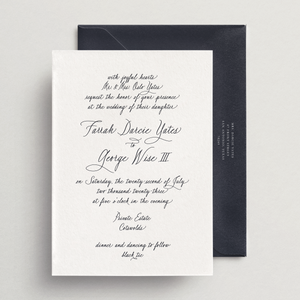 with joyful hearts
Mr. & Mrs. Yates
request the honor of your presence
at the wedding of their daughter
Farrah Darcie Yates
to
George Wise III
on Saturday, the twenty second of July
two thousand twenty three
at five o'clock in the evening
Private Estate
Cotswolds
dinner and dancing to follow
black tie